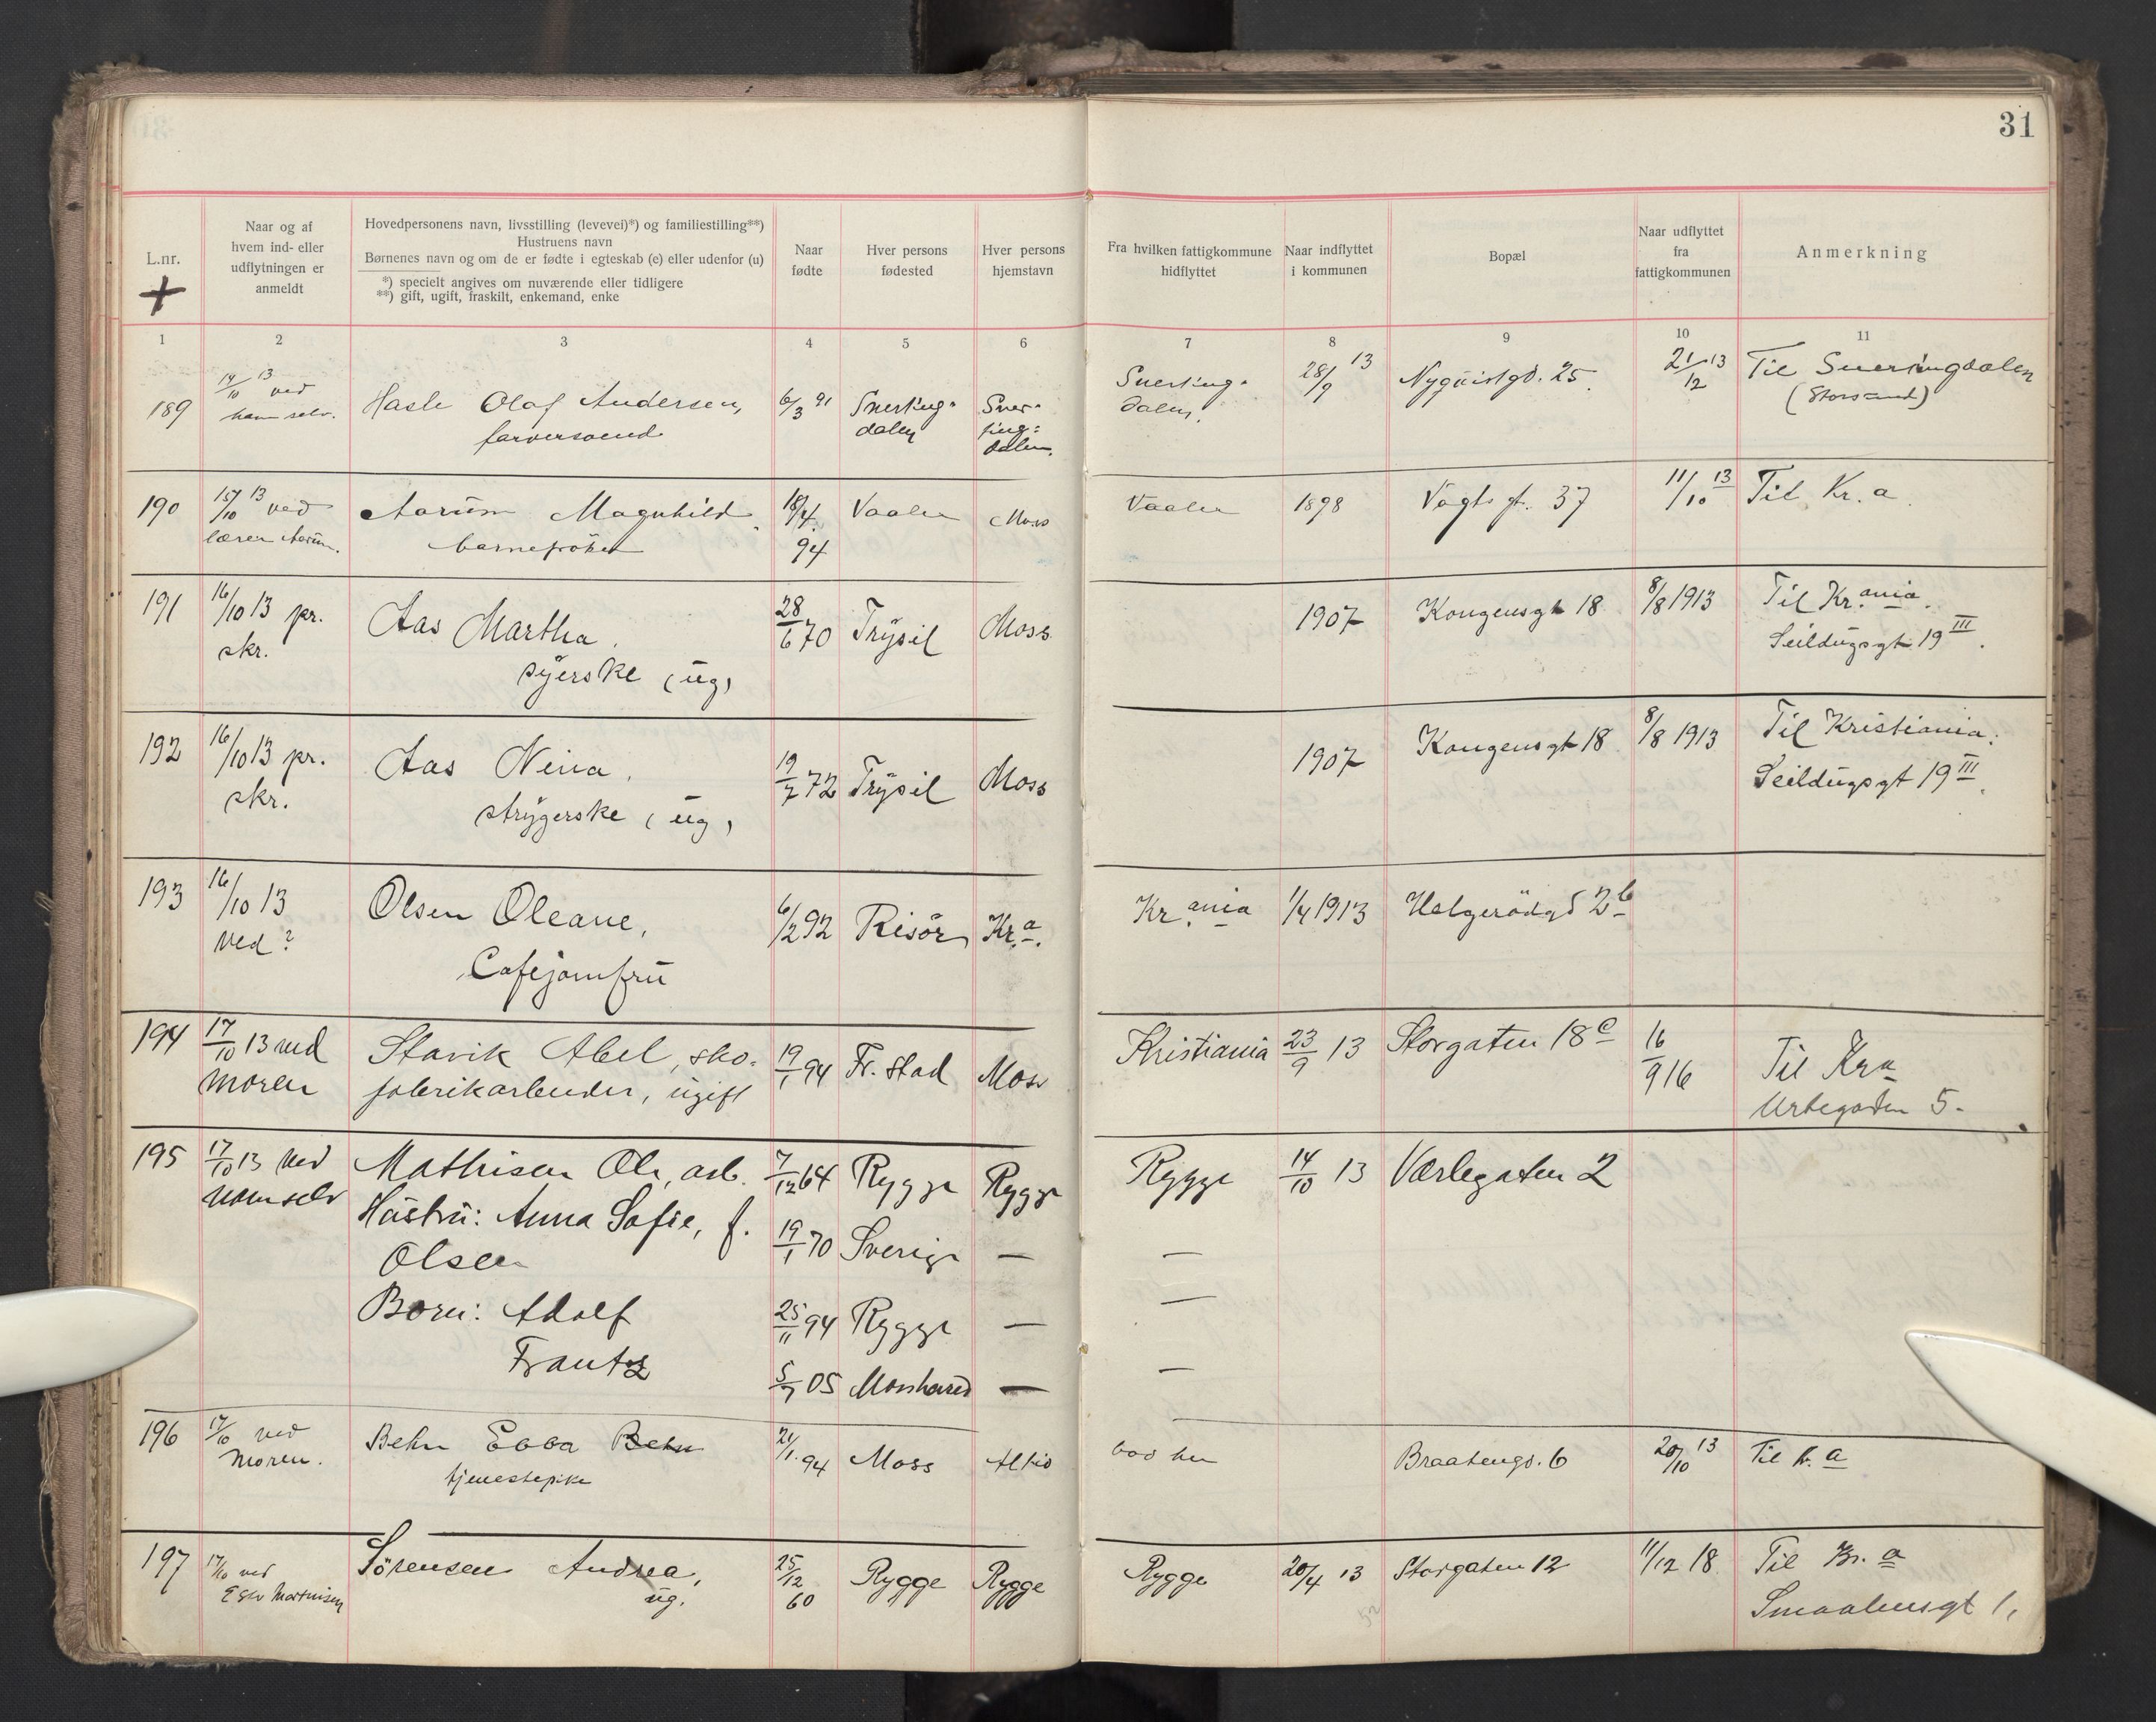 31
L.nr.
Naar og af
hvem ind- eller
udflytningen er
anmeldt
Hovedpersonens navn, livsstilling (levevei)*) og familiestilling**)
Hustruens navn
Børnenes navn og om de er fødte i egteskab (e) eller udenfor (u)
*) specielt angives om nuværende eller tidligere
**) gift, ugift, fraskilt, enkemand, enke
Naar
fødte
Hver persons
fødested
Hver persons
hjemstavn
Fra hvilken fattigkommune
hidflyttet
Naar indflyttet
i kommunen
Bopæl
Naar udflyttet
fra
fattigkommunen
Anmerkning
1 2 3 4 5 6 7 8 9 10 11
189 14/10 13 ved Hasle Olaf Andersen, 6/3 91 Snerting- Sner- Snerting- 28/9 13 Nyquistgd. 25. 21/12 13 Til Snertingdalen
ham selv. farversvend dalen ting= dalen. (Storsund)
dalen.
190 15/10 13 ved Aarum Magnhild 18/4 94 Vaaler Moss Vaaler 1898 Vogts gt. 37 11/10 13 Til Kr.a
lærer Aarum. barnefrøken
191 16/10 13 pr. Aas Martha, 28/6 70 Trysil Moss 1907 Kongensgt 18 8/8 1913 Til Kr.ania.
skr. syerske (ug) Seildugsgt 19 III.
192 16/10 13 pr. Aas Nina, 19/7 72 Trysil Moss 1907 Kongensgt 18 8/8 1913 Til Kristiania.
skr. strygerske (ug) Seildugsgt 19 III.
193 16/10 13 Olsen Oleane, 6/2 92 Risör Kr.a. Kr.ania 1/4 1913 Helgerödgd 2b
ved? Cafejomfru
194 17/10 13 ved Stavik Abel, sko- 19/1 94 Fr.stad Moss Kristiania 23/9 13 Storgaten 18c 16/9 16 Til Kra
moren fabrikarbeider, ugift Urtegaden 5.
195 17/10 13 ved Mathisen Ole, arb. 7/12 64 Rygge Rygge Rygge 14/10 13 Værlegaten 2
ham selv Hustru: Anna Sofie, f. 19/1 70 Sverige — —
Olsen
Børn: Adolf 25/11 94 Rygge — —
Frantz 5/7 05 Mossherred — —
196 17/10 ved Behn Ebba Behn 21/1. 94 Moss Altid bod her Braatengd. 6 20/10 13 Til k.a
moren. tjenestepike
197 17/10 ved Sörensen Andrea, 25/12 60 Rygge Rygge Rygge 20/4 13 Storgaten 12 11/12 18 Til Kr.a
Martinsen ug. Smaalensgt 1,